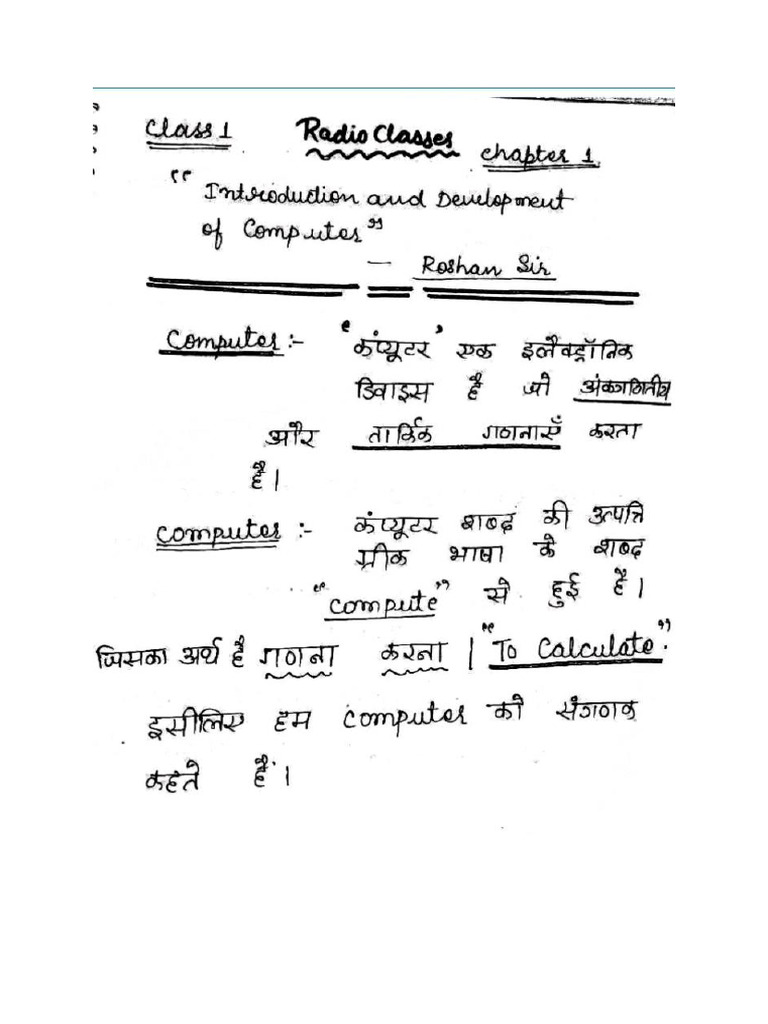 Class 1 Radio Classes chapter 1
"Introduction and Development
of Computer"
— Roshan Sir
Computer :- 'कंप्यूटर' एक इलैक्ट्रॉनिक
डिवाइस है जो अंकगणितीय
और तार्किक गणनाएँ करता
है।
Computer :- कंप्यूटर शब्द की उत्पत्ति
ग्रीक भाषा के शब्द
"compute" से हुई है।
जिसका अर्थ है गणना करना। "To Calculate".
इसीलिए हम computer को संगणक
कहते हैं।